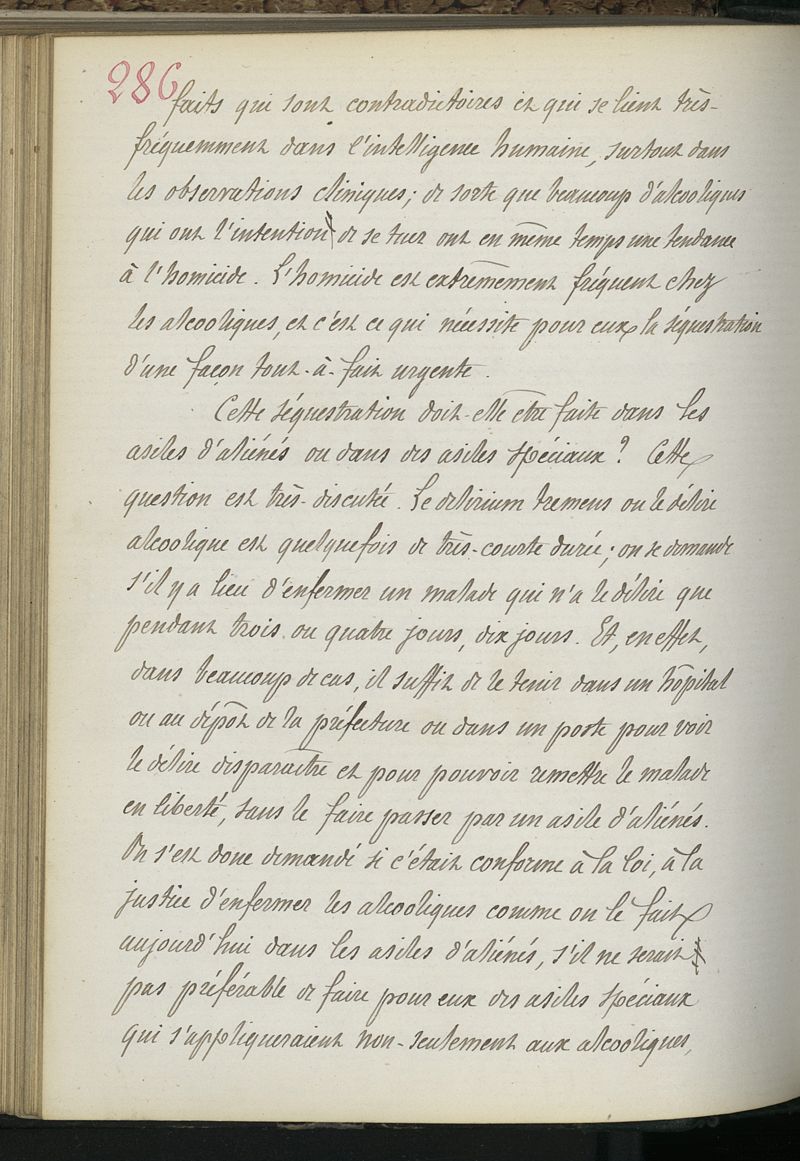 286
faits qui sont contradictoires et qui se lient très-
fréquemment dans l'intelligence humaine, surtout dans
les observations cliniques; de sorte que beaucoup d'alcooliques
qui ont l'intention de se tuer ont en même temps une tendance
à l'homicide. L'homicide est extrêmement fréquent chez
les alcooliques, et c'est ce qui nécessite pour eux la séquestration
d'une façon tout-à-fait urgente.
Cette séquestration doit-elle être faite dans les
asiles d'aliénés ou dans des asiles spéciaux? Cette
question est très-discutée. Le delirium tremens ou le délire
alcoolique est quelquefois de très-courte durée; on se demande
s'il y a lieu d'enfermer un malade qui n'a le délire que
pendant trois ou quatre jours, dix jours. Et, en effet,
dans beaucoup de cas, il suffit de le tenir dans un hôpital
ou au dépôt de la préfecture ou dans un poste pour voir
le délire disparaître et pour pouvoir remettre le malade
en liberté, sans le faire passer par un asile d'aliénés.
On s'est donc demandé si c'était conforme à la loi, à la
justice d'enfermer les alcooliques comme on le fait
aujourd'hui dans les asiles d'aliénés, s'il ne serait
pas préférable de faire pour eux des asiles spéciaux
qui s'appliqueraient non-seulement aux alcooliques,